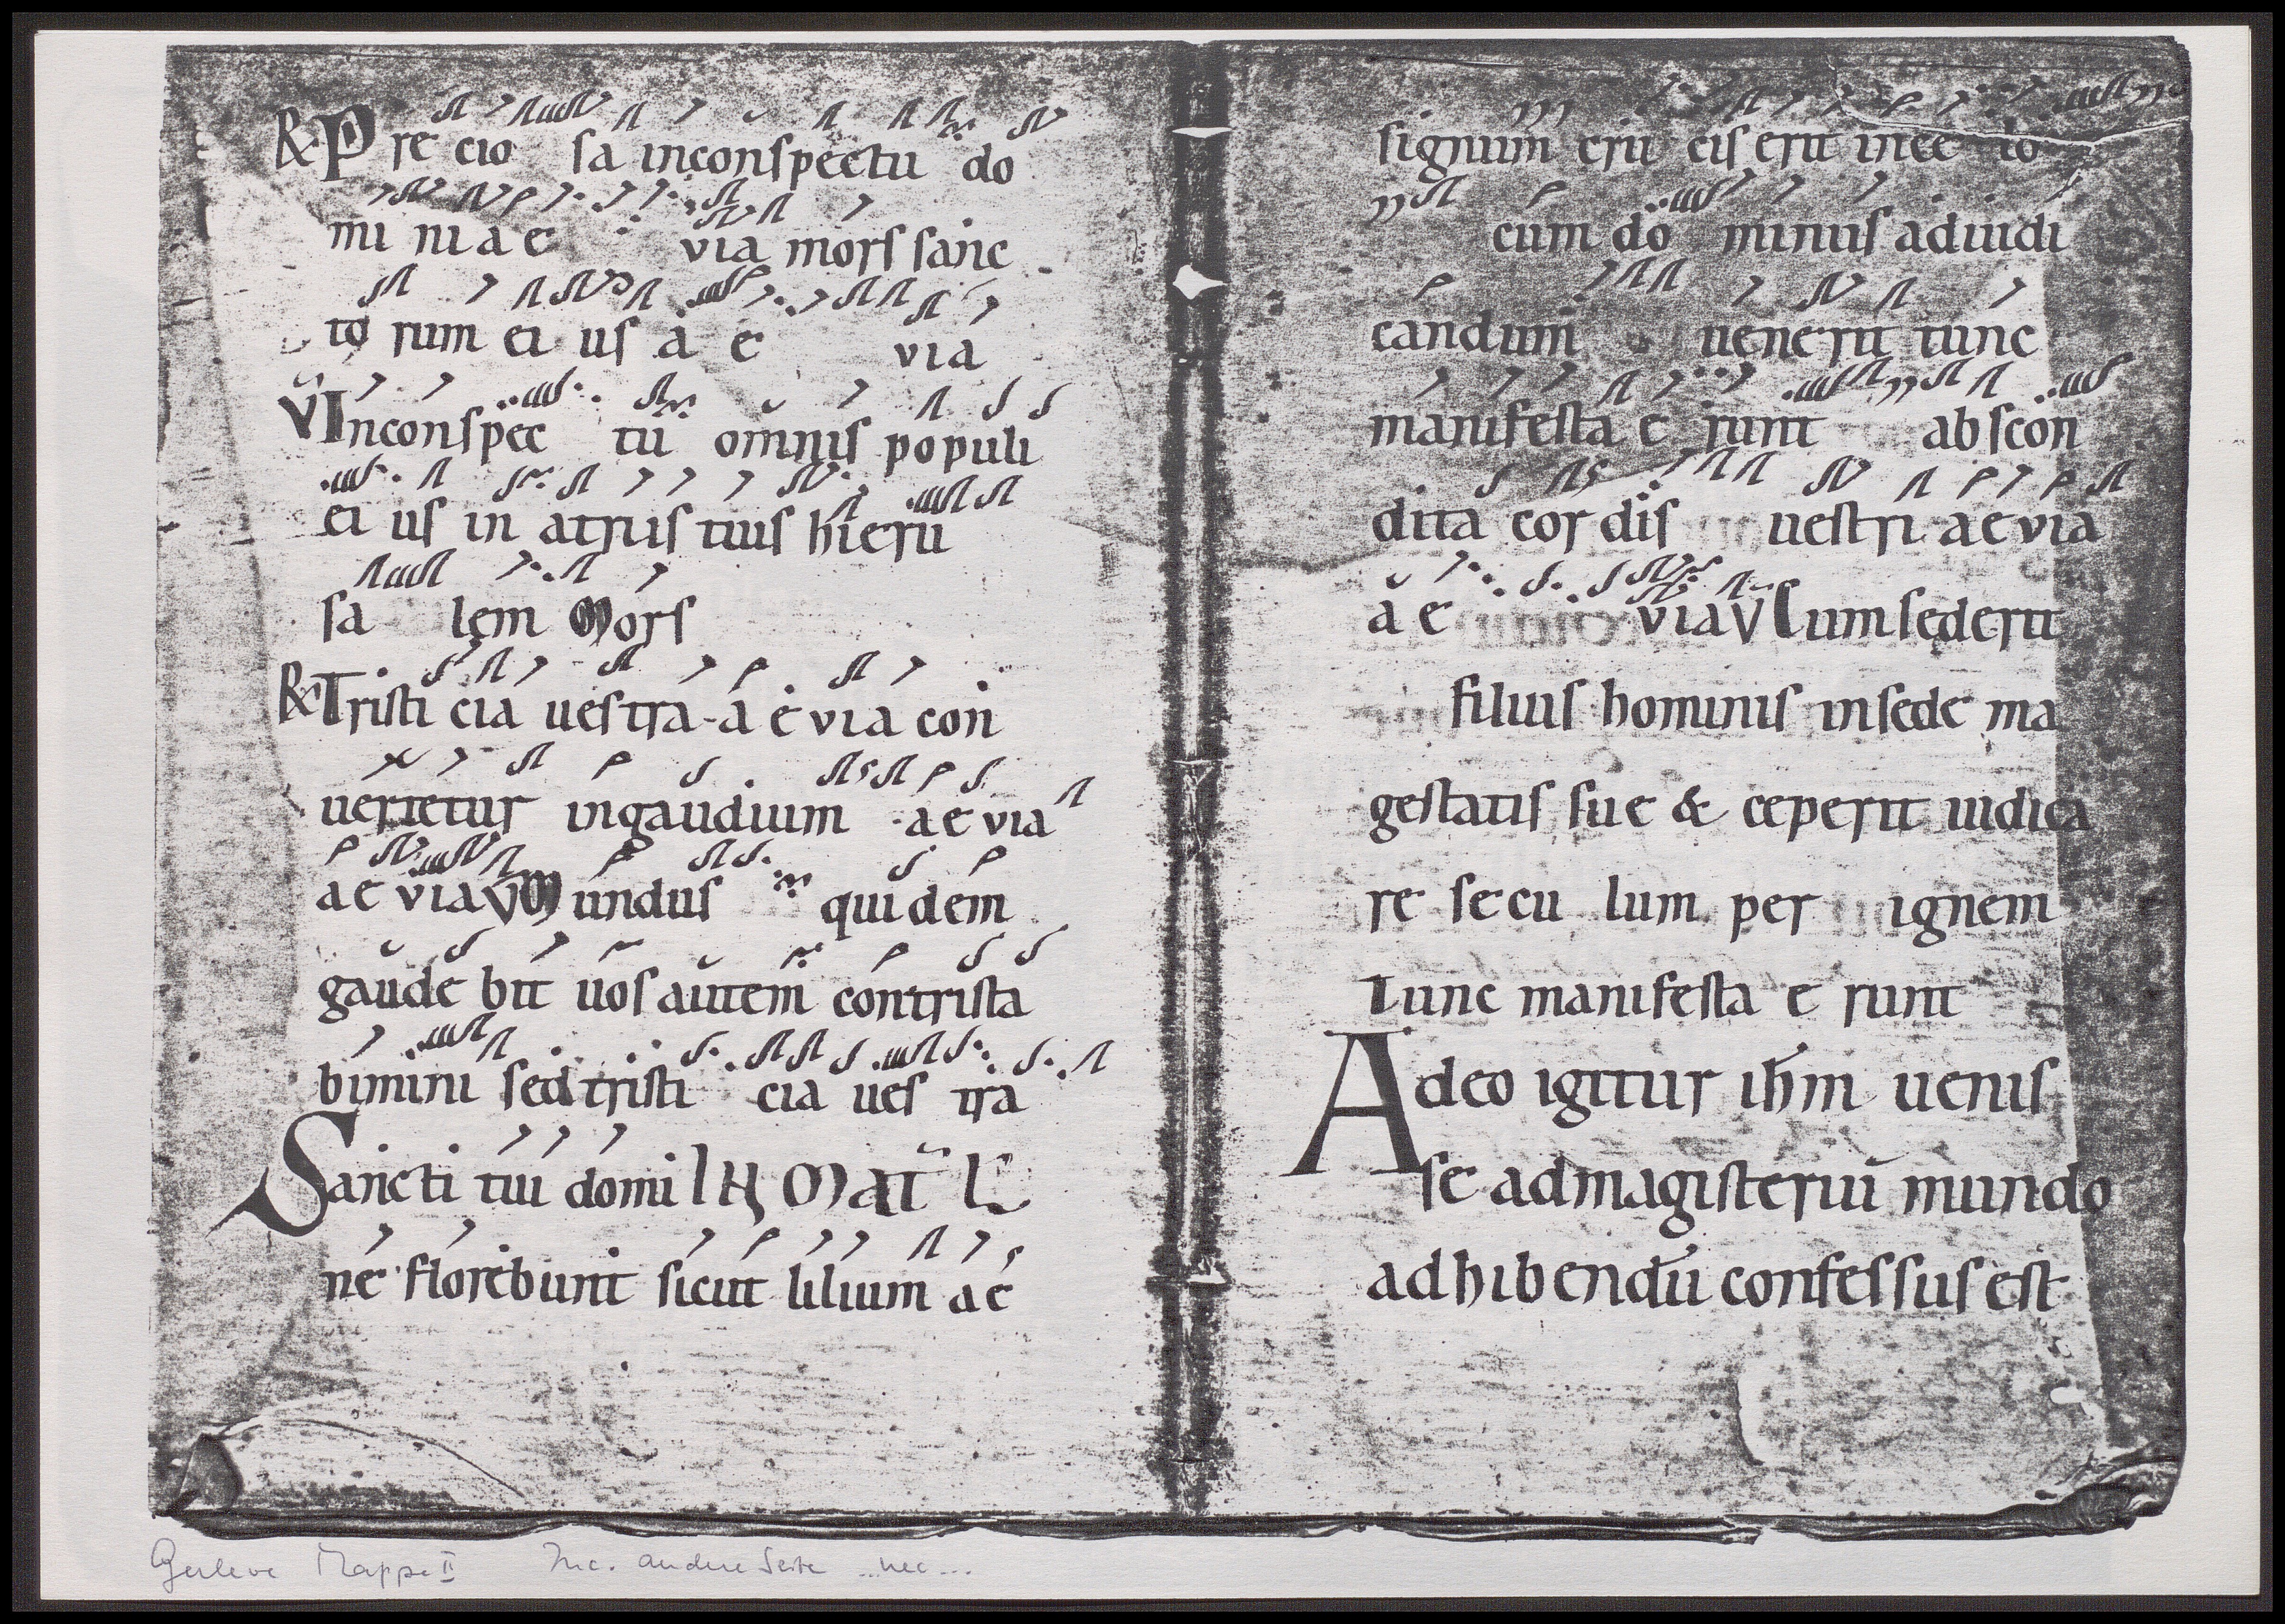 R Pre cio sa inconspectu do
mi ni a e via mors sanc
to rum ei us a e via
V Inconspec tu omnis populi
ei us in atriis tuis hieru
sa lem Mors
R Tristi cia uestra a e via con
uertetur ingaudium a e via
a e via V Mundus quidem
gaude bit uos autem contrista
bimini sed tristi cia ues tra
Sancti tui domi IN Mat
ne florebunt sicut lilium ae
signum cru cis erit in ce lo
cum do minus adiudi
candum uenerit tunc
manifesta e runt abscon
dita cor dis uestri a e via
a e via V Cum sederit
filius hominis insede ma
gestatis sue & ceperit iudica
re secu lum per ignem
Tunc manifesta e runt
Adeo igitur ihm uenis
se admagisteriū mundo
adhibendū confessus est
Gerleve Mappe II Inc. andere Seite ...nec...